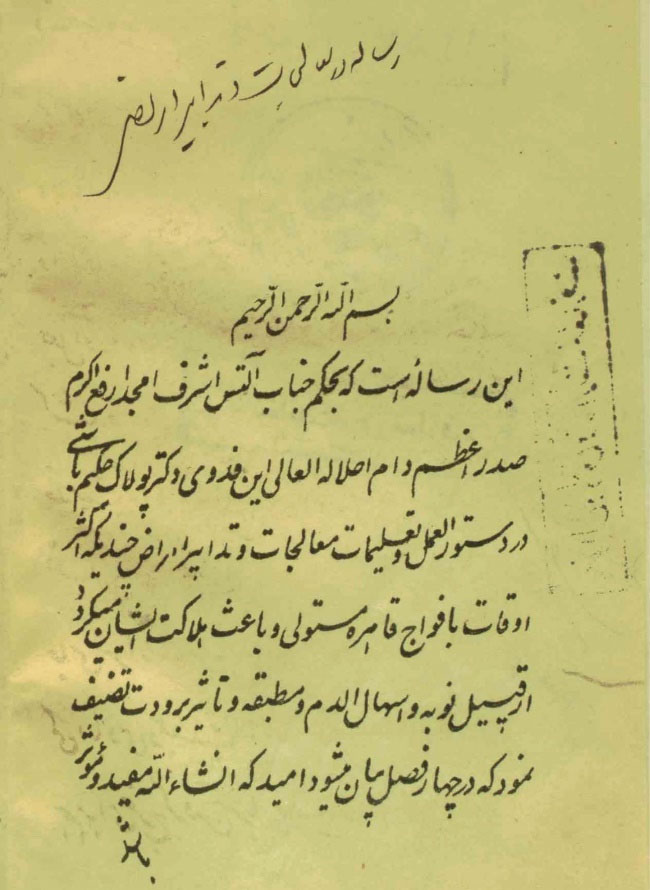 رساله در معالجات و تدابیر امراض
بسم الله الرحمن الرحیم
این رساله است که بحکم جناب آلتس اشرف امجد ارفع اکرم
صدر اعظم دام اجلاله العالی این فدوی دکتر پولاک حکیم باشی
در دستور العمل و تعلیمات معالجات و تدابیر امراض چندیکه اکثر
اوقات بافواج قاهره مستولی و باعث هلاکت ایشان میگردد
از قبیل نوبه و اسهال الدم و مطبقه و تاثیر برودت تصنیف
نمود که در چهار فصل بیان میشود امید که انشاء الله مفید و مؤثر
باشد